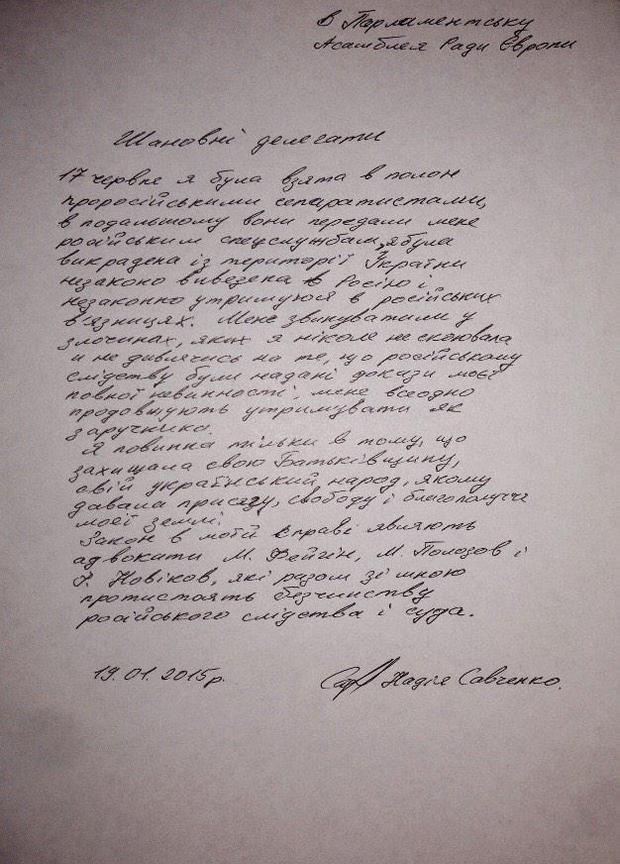 в Парламентську
Асамблея Ради Європи
Шановні делегати
17 червня я була взята в полон
проросійськими сепаратистами,
в подальшому вони передали мене
російським спецслужбам, я була
викрадена із території України
незаконо вивезена в Росію і
незаконно утримуюся в російських
в'язницях. Мене звинуватили у
злочинах, яких я ніколе не скоювала
и не дивлячись на те, що російському
слідству були надані докази моєї
повної невинності, мене всеодно
продовжують утримувати як
заручника.
Я повинна тільки в тому, що
захищала свою Батьківщину,
свій український народ, якому
давала присягу, свободу і благополуччя
моєї землі.
Закон в моїй справі являють
адвокати М. Фейгін, М. Полозов і
І. Новіков, які разом зі мною
протистоять безчинству
російського слідства і суда.
19.01.2015р. Надія Савченко.